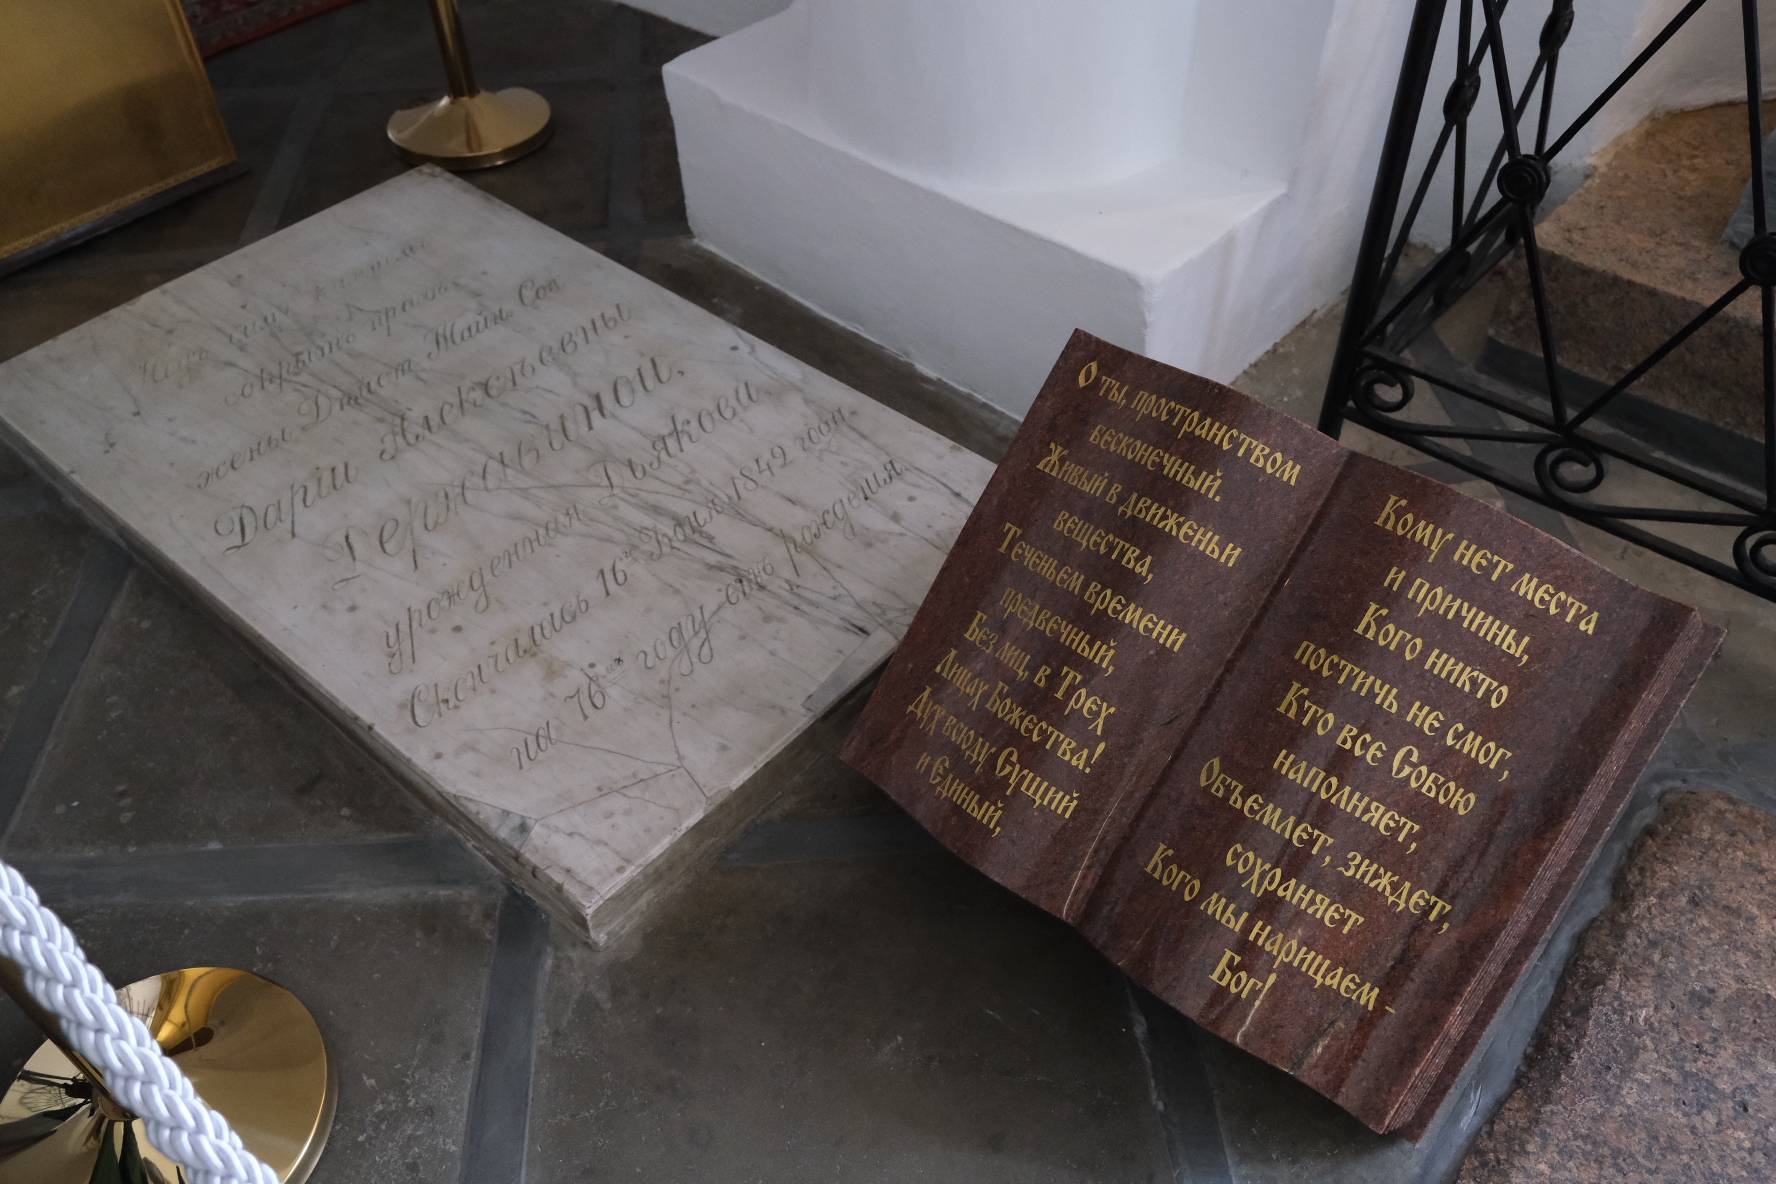 Надъ симъ камнемъ
сокрытъ прахъ
жены Дѣйст. Тайн. Сов
Даріи Алексѣевны
Державиной,
урожденная Дьякова.
Скончалась 16го Іюня 1842 года
на 76мъ году отъ рожденія.
О ты, пространством
бесконечный.
Живый в движеньи
вещества,
Теченьем времени
предвечный,
Без лиц, в Трех
Лицах Божества!
Дух всюду Сущий
и Единый,
Кому нет места
и причины,
Кого никто
постичь не смог,
Кто все Собою
наполняет,
Объемлет, зиждет,
сохраняет
Кого мы нарицаем -
Бог!